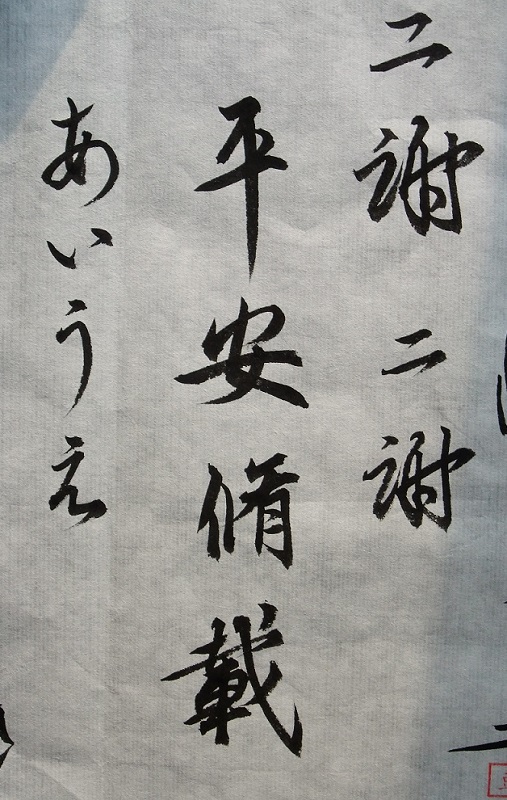 二謝二謝
平安脩載
あいうえ